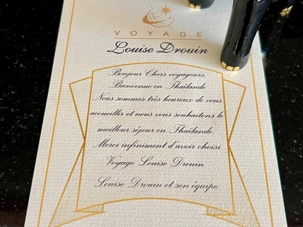 VOYAGE
Louise Drouin
Bonjour Chers voyageurs.
Bienvenue en Thaïlande
Nous sommes très heureux de vous
accueillir et nous vous souhaitons le
meilleur séjour en Thaïlande.
Merci infiniment d'avoir choisi
Voyage Louise Drouin.
Louise Drouin et son équipe